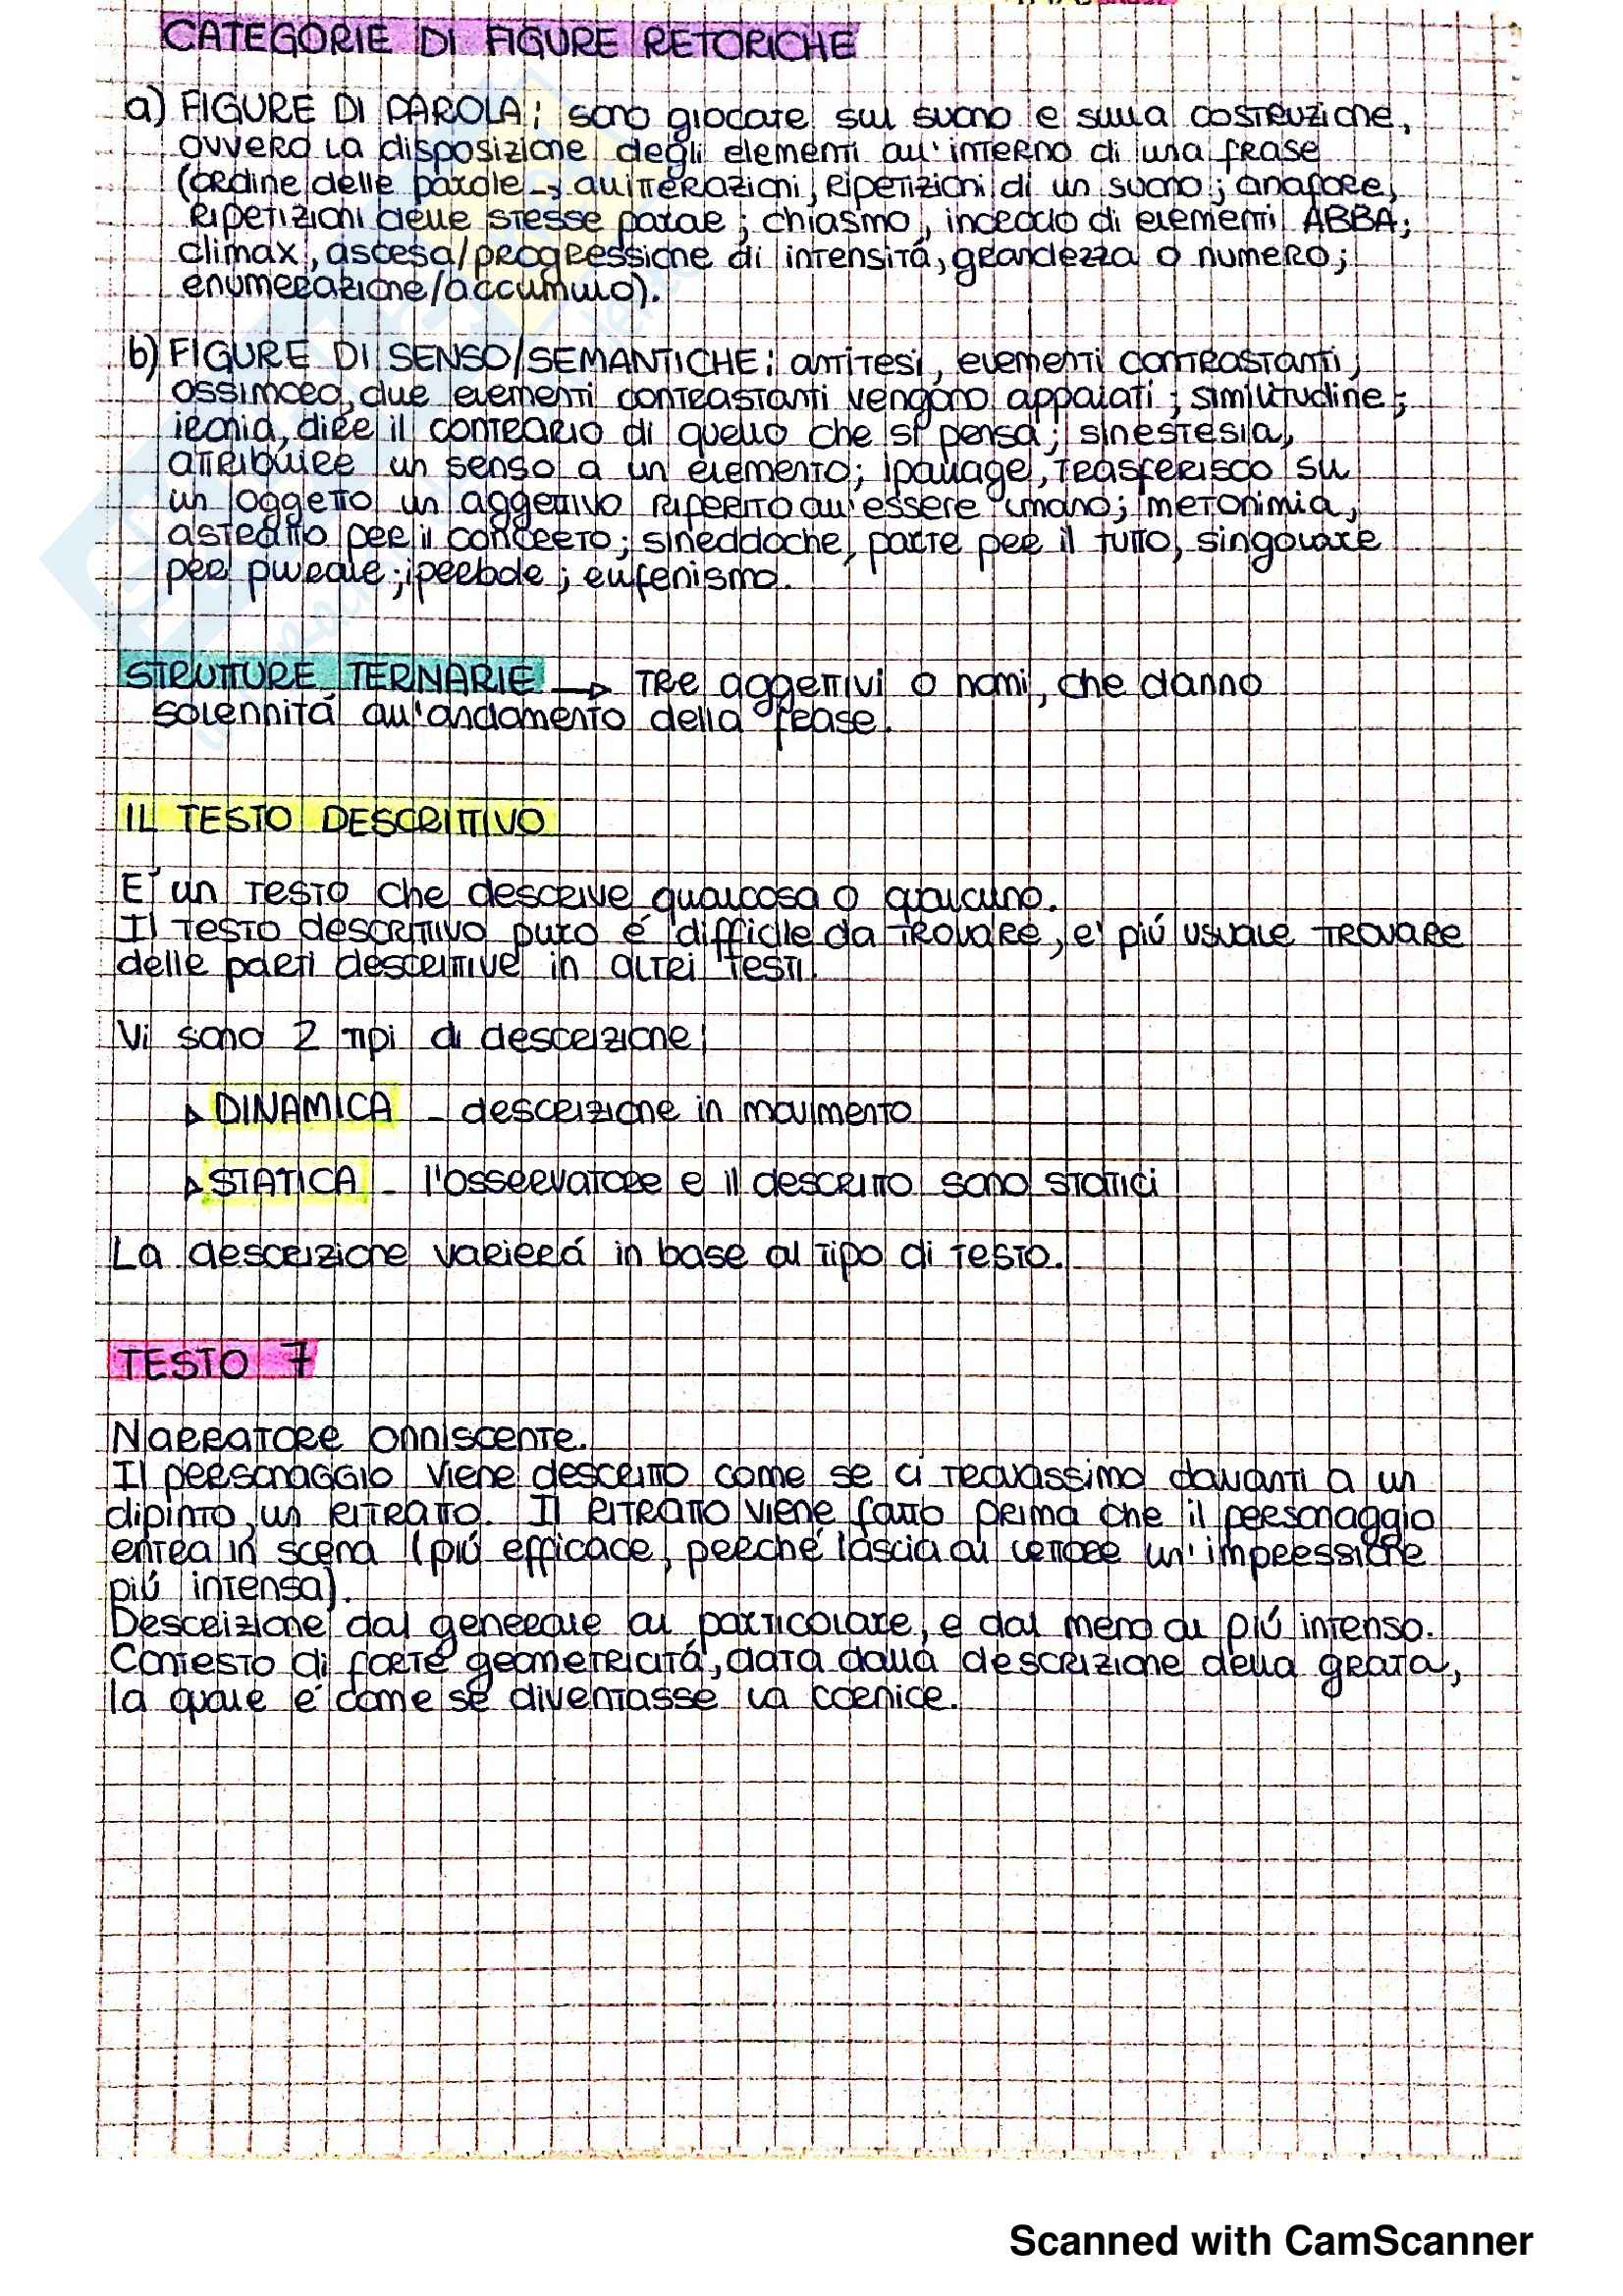 CATEGORIE DI FIGURE RETORICHE
a) FIGURE DI PAROLA: sono giocate sul suono e sulla costruzione,
ovvero la disposizione degli elementi all'interno di una frase
(ordine delle parole → allitterazioni, ripetizioni di un suono; anafore,
ripetizioni delle stesse parole; chiasmo, incrocio di elementi ABBA;
climax, ascesa/progressione di intensitá, grandezza o numero;
enumerazione/accumulo).
b) FIGURE DI SENSO/SEMANTICHE: antitesi, elementi contrastanti;
ossimoro, due elementi contrastanti vengono appaiati; similitudine;
ironia, dire il contrario di quello che si pensa; sinestesia,
attribuire un senso a un elemento; ipallage, trasferisco su
un oggetto un aggettivo riferito all'essere umano; metonimia,
astratto per il concreto; sineddoche, parte per il tutto, singolare
per plurale; iperbole; eufenismo.
STRUTTURE TERNARIE → Tre aggettivi o nomi, che danno
solennitá all'andamento della frase.
IL TESTO DESCRITTIVO
E' un testo che descrive qualcosa o qualcuno.
Il testo descrittivo puro é difficile da trovare, e' piú usuale trovare
delle parti descrittive in altri testi.
Vi sono 2 tipi di descrizione:
▹ DINAMICA - descrizione in movimento
▹ STATICA - l'osservatore e il descritto sono statici
La descrizione varierá in base al tipo di testo.
TESTO 7
Narratore onniscente.
Il personaggio viene descritto come se ci trovassimo davanti a un
dipinto, un ritratto. Il ritratto viene fatto prima che il personaggio
entra in scena (piú efficace, perché lascia al lettore un'impressione
piú intensa).
Descrizione dal generale al particolare, e dal meno al piú intenso.
Contesto di forte geometricitá, data dalla descrizione della grata,
la quale é come se diventasse la cornice.
Scanned with CamScanner